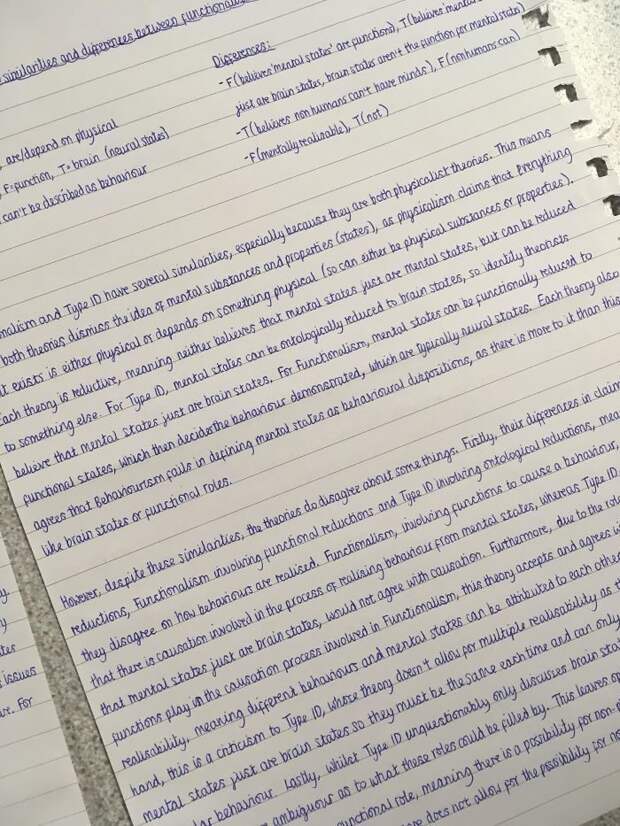 similarities and differences between functionalis
Differences:
- F (believes 'mental states' are functions), T (believes 'mental
just are brain states, brain states aren't the function for mental state)
- T (believes non humans can't have minds), F (nonhumans can)
- F (mentally realizable), T (not)
are/depend on physical
F=function, T=brain (neural states)
can't be described as behaviour
nalism and Type ID have several similarities, especially because they are both physicalist theories. This means
both theories dismiss the idea of mental substances and properties (states), as physicalism claims that everything
t exists is either physical or depends on something physical (so can either be physical substances or properties).
Each theory is reductive, meaning neither believes that mental states just are mental states, but can be reduced
to something else. For Type ID, mental states can be ontologically reduced to brain states, so identity theorists
believe that mental states just are brain states. For Functionalism, mental states can be functionally reduced to
functional states, which then decides the behaviour demonstrated, which are typically neural states. Each theory also
agrees that Behaviourism fails in defining mental states as behavioural dispositions, as there is more to it than this
like brain states or functional roles.
However, despite these similarities, the theories do disagree about some things. Firstly, their differences in claim
reductions, Functionalism involving functional reductions and Type ID involving ontological reductions, mea
they disagree on how behaviours are realised. Functionalism, involving functions to cause a behaviour,
that there is causation involved in the process of realising behaviour from mental states, whereas Type ID
that mental states just are brain states, would not agree with causation. Furthermore, due to the role
functions play in the causation process involved in Functionalism, this theory accepts and agrees wi
realisability, meaning different behaviours and mental states can be attributed to each other
hand, this is a criticism to Type ID, whose theory doesn't allow for multiple realisability as th
mental states just are brain states so they must be the same each time and can only
lar behaviour. Lastly, whilst Type ID unquestionably only discusses brain stat
ambiguous as to what these roles could be filled by. This leaves op
unctional role, meaning there is a possibility for non-p
does not allow for the possibility for no
issues
For